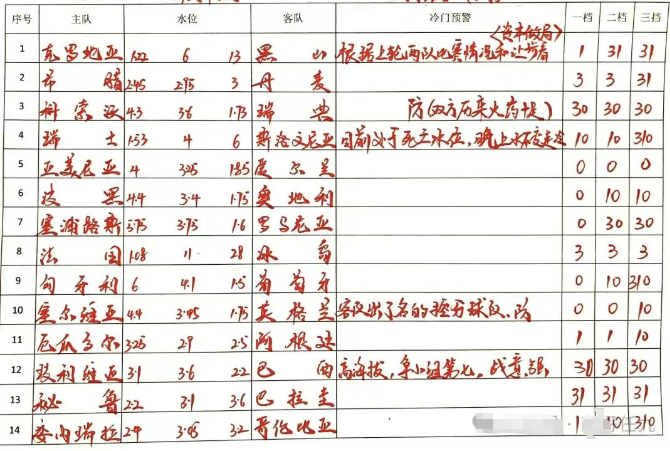 序号 主队 水位 客队 冷门预警 一档 二档 三档
〈资本做局〉
1 克罗地亚 1.22 6 13 黑山 根据上轮两队比赛情况和让步看 1 31 31
2 希腊 2.45 2.95 3 丹麦 3 3 31
3 科索沃 4.3 3.6 1.73 瑞典 防(双方历来火药味) 30 30 30
4 瑞士 1.53 4 6 斯洛文尼亚 目前处于死亡水位,晚上水位变 10 10 310
5 亚美尼亚 4 3.25 1.85 爱尔兰 0 0 0
6 波黑 4.4 3.4 1.75 奥地利 0 10 10
7 塞浦路斯 5.75 3.75 1.6 罗马尼亚 0 30 30
8 法国 1.08 11 28 冰岛 3 3 3
9 匈牙利 6 4.1 1.5 葡萄牙 0 10 310
10 塞尔维亚 4.4 3.45 1.75 英格兰 客队出了名的控分球队、防 0 0 10
11 厄瓜多尔 3.25 2.9 2.5 阿根廷 1 1 10
12 玻利维亚 3.1 3.6 2.2 巴西 高海拔,争小组第七,战意强 30 30 30
13 秘鲁 2.2 3.1 3.6 巴拉圭 31 31 31
14 委内瑞拉 2.9 3.05 3.2 哥伦比亚 1 10 310